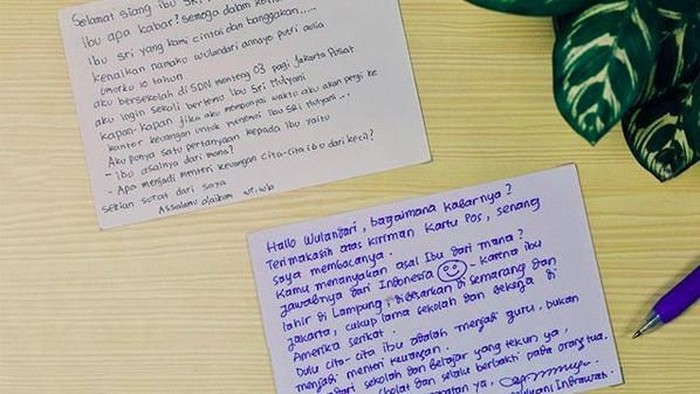 Selamat siang ibu SRI
ibu apa kabar? semoga dalam
ibu Sri yang kami cintai dan banggakan.....
kenalkan namaku wulandari annayo putri aulia
Umurku 10 tahun
aku bersekolah di SDN menteng 03 pagi Jakarta Pusat
aku ingin sekali bertemu Ibu Sri Mulyani
kapan-kapan jika aku mempunyai waktu aku akan pergi ke
kantor keuangan untuk menemui Ibu SRI Mulyani...
Aku punya satu pertanyaan kepada ibu yaitu
- ibu asalnya dari mana?
- Apa menjadi menteri keuangan cita-cita ibu dari kecil?
sekian surat dari saya
Assalamu alaikum wr.wb
Hallo Wulandari, bagaimana kabarnya?
Terimakasih atas kiriman Kartu Pos, senang
saya membacanya.
Kamu menanyakan asal Ibu dari mana?
Jawabnya dari Indonesia - karena ibu
lahir di Lampung, dibesarkan di Semarang dan
Jakarta, cukup lama sekolah dan bekerja di
Amerika Serikat.
Dulu cita-cita ibu adalah menjadi guru, bukan
menjadi menteri keuangan.
sekolah dan Belajar yang tekun ya,
Sholat dan selalu berbakti pada orang tua.
ya,
Mulyani Indrawati